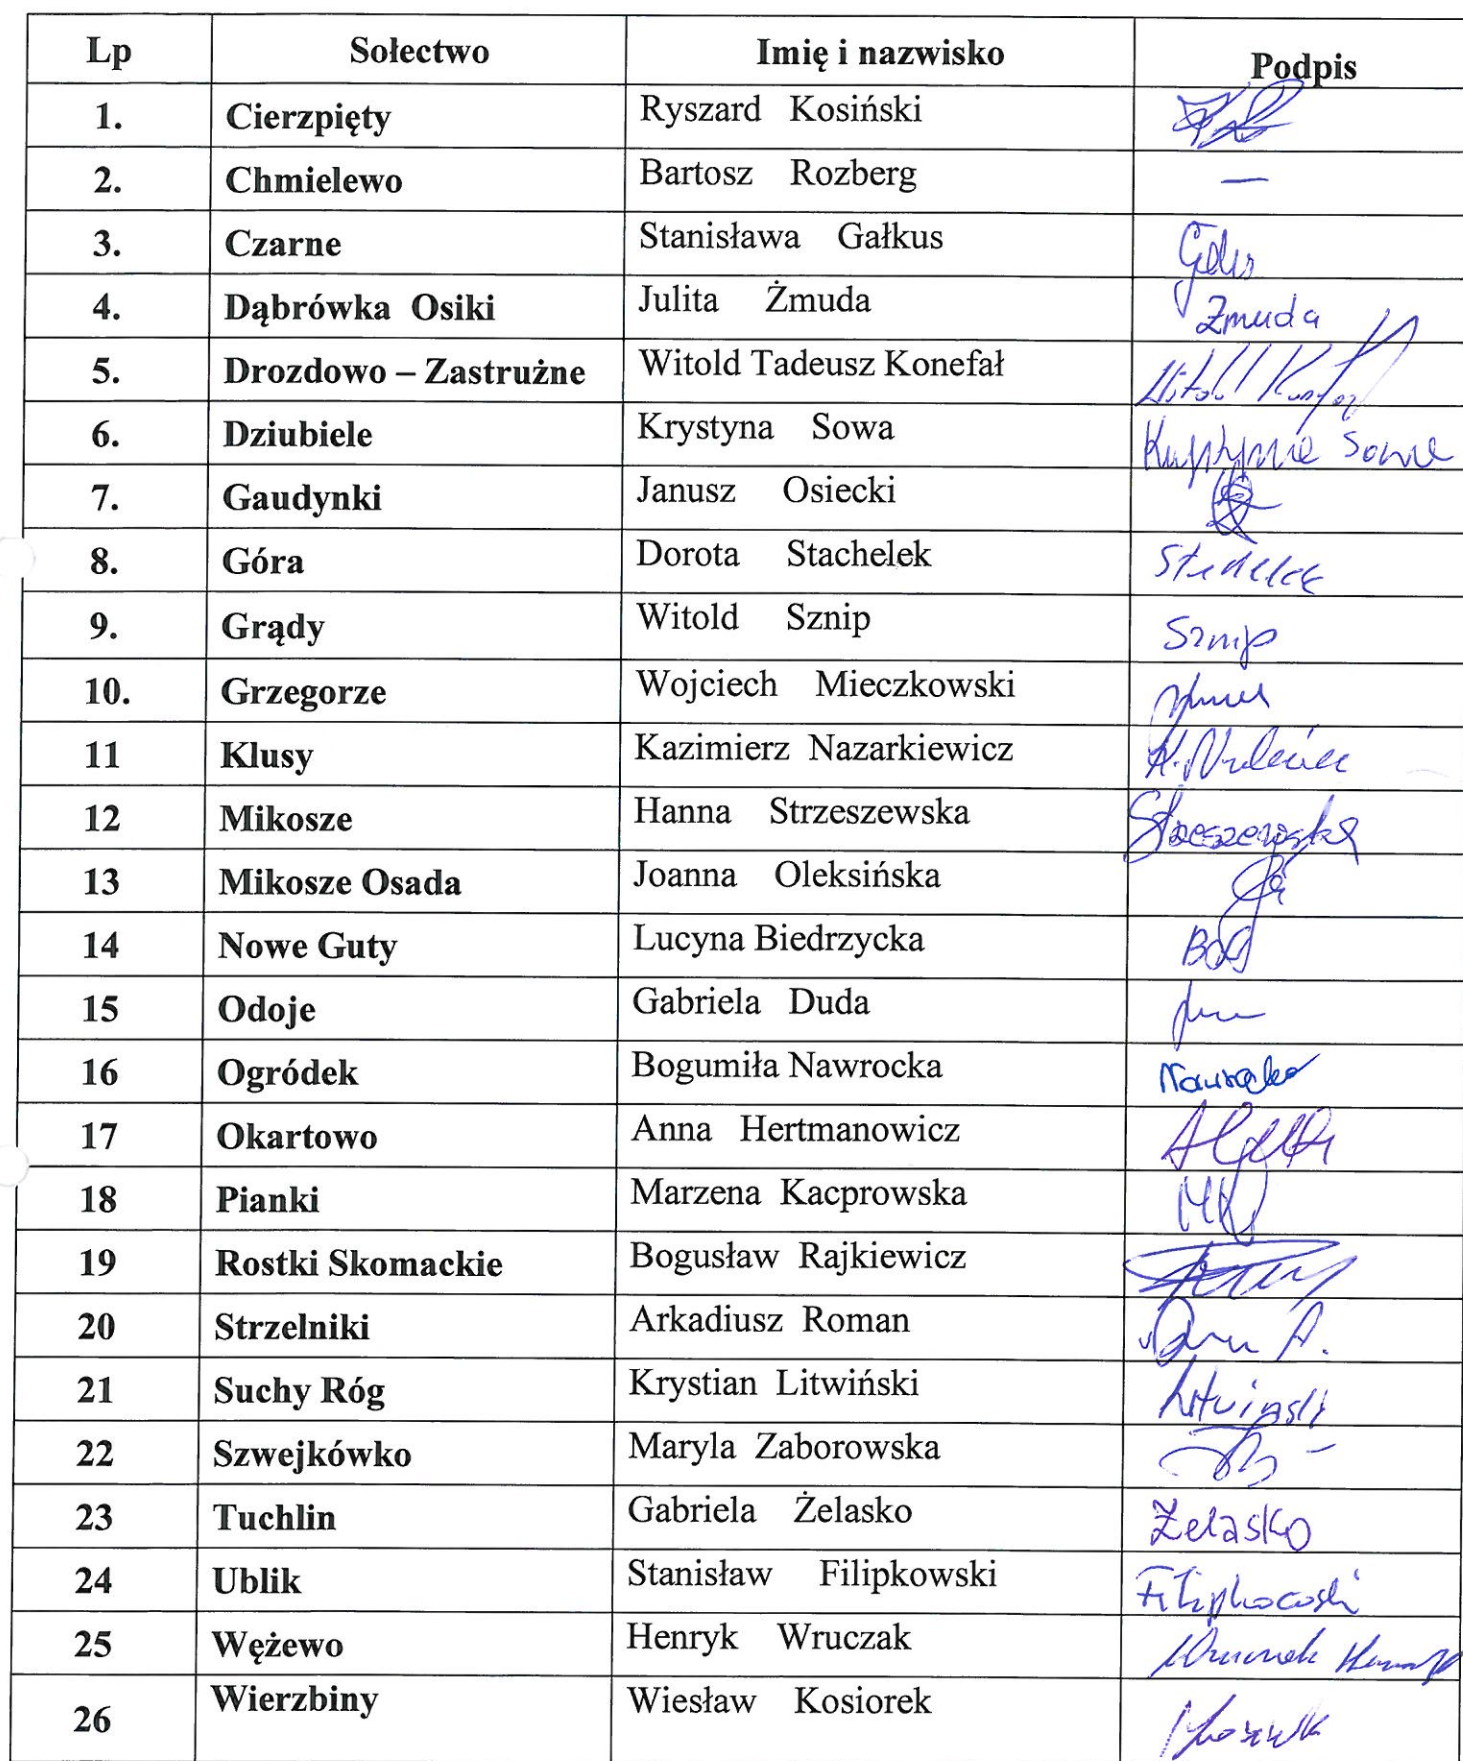 Lp Sołectwo Imię i nazwisko Podpis
1. Cierzpięty Ryszard Kosiński
2. Chmielewo Bartosz Rozberg —
3. Czarne Stanisława Gałkus
4. Dąbrówka Osiki Julita Żmuda Żmuda
5. Drozdowo – Zastrużne Witold Tadeusz Konefał Witold
6. Dziubiele Krystyna Sowa Krystyna Sowa
7. Gaudynki Janusz Osiecki
8. Góra Dorota Stachelek Stachelek
9. Grądy Witold Sznip Sznip
10. Grzegorze Wojciech Mieczkowski
11 Klusy Kazimierz Nazarkiewicz
12 Mikosze Hanna Strzeszewska Strzeszewska
13 Mikosze Osada Joanna Oleksińska
14 Nowe Guty Lucyna Biedrzycka
15 Odoje Gabriela Duda
16 Ogródek Bogumiła Nawrocka Nawrocka
17 Okartowo Anna Hertmanowicz
18 Pianki Marzena Kacprowska MK
19 Rostki Skomackie Bogusław Rajkiewicz
20 Strzelniki Arkadiusz Roman
21 Suchy Róg Krystian Litwiński Litwiński
22 Szwejkówko Maryla Zaborowska
23 Tuchlin Gabriela Żelasko Żelasko
24 Ublik Stanisław Filipkowski Filipkowski
25 Wężewo Henryk Wruczak
26 Wierzbiny Wiesław Kosiorek